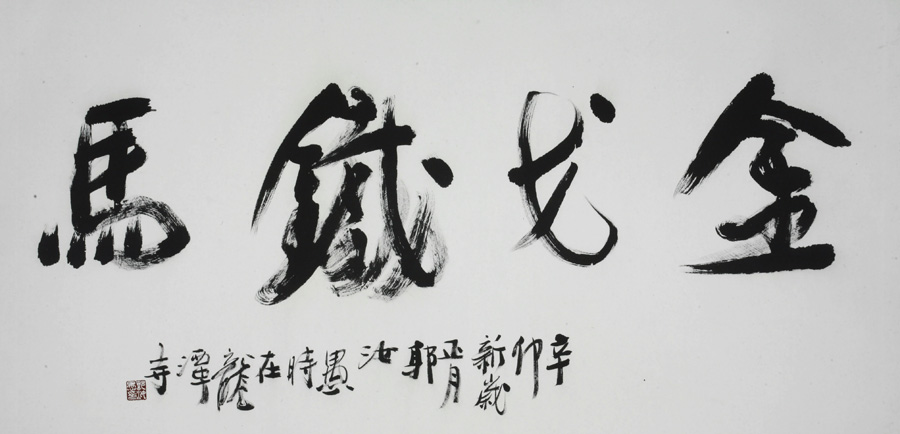 金戈鐵馬
辛卯新歲正月郭汝愚時在龍潭寺